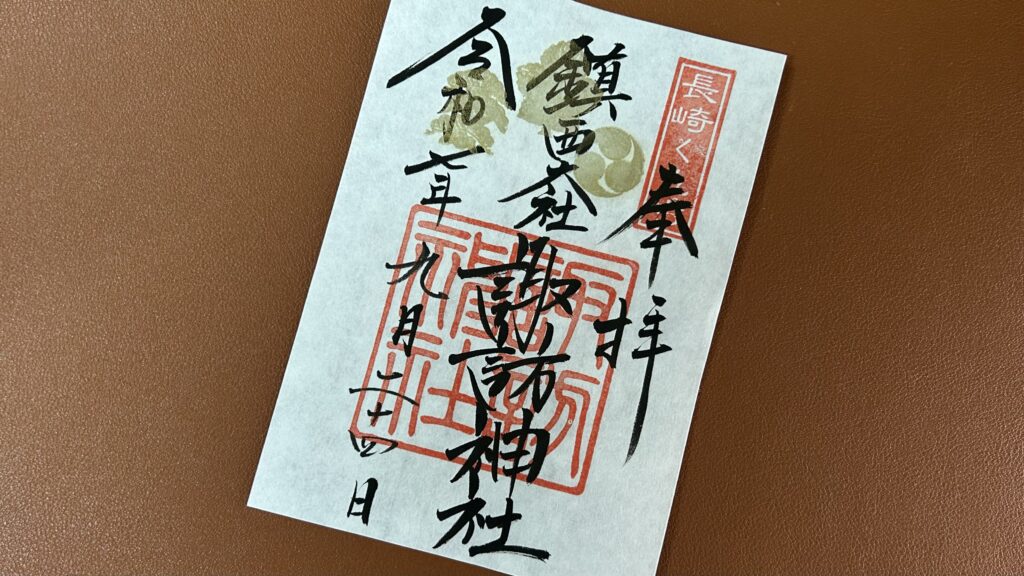 長崎く
奉拝
鎮西大社
諏訪神社
令和七年九月二十四日
諏訪神社